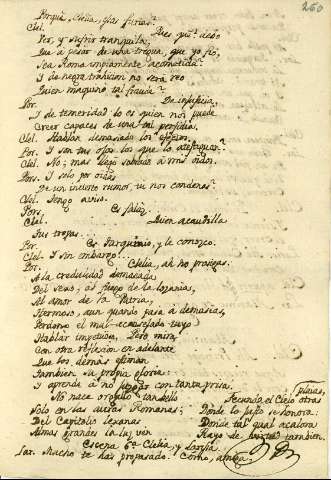 260
Porqué, Clelia, essas furias?
Clel. Pues qué? debo
Ver, y sufrir tranquila,
Que a pesar de una tregua, que yo fio,
Sea Roma impiamente acometida?
I de negra trahicion no será reo
Quien maquinó tal fraude?
Por. De injusticia,
I de temeridad lo es quien nos puede
Creer capaces de una tal perfidia.
Clel. Hablan demasiado los efectos.
Por. I son tus ojos los que lo atestiguan?
Clel. No; mas dejo sobrado a mis oidos.
Pors. I solo por oidas
De un incierto rumor, tu nos condenas?
Clel. Tengo aviso.
Pors. Es falso.
Clel. Quien acaudilla
Tus tropas....
Por. Es Tarquinio, y le conozco.
Clel. I sin embargo...
Por. Clelia, ah no prosigas.
A la credulidad demasiada
Del sexo, al fuego de la lozania,
Al amor de la Patria,
Hermoso, aun quando pasa a demasias,
Perdono el mal-aconsejado tuyo
Hablar impetuoso. Pero mira,
Con otra reflexion en adelante
Que los demás estiman
Tambien su propia gloria:
I aprende a no juzgar con tanta prisa.
No nace orgullo tan bello
Solo en las auras Romanas;
Del Capitolio lexanas
Almas grandes la luz ven
Fecunda el Cielo otras playas,
Donde lo justo se honora:
Donde tal qual acalora
Rayo de virtud tambien.
Escena 6ª Clelia, y Larisa
Lar. Mucho te has propasado. Cómo, amiga,